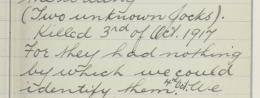 (Two unknown Jocks).
Killed 3rd of Oct. 1917
For they had nothing
by which we could
identify them. We